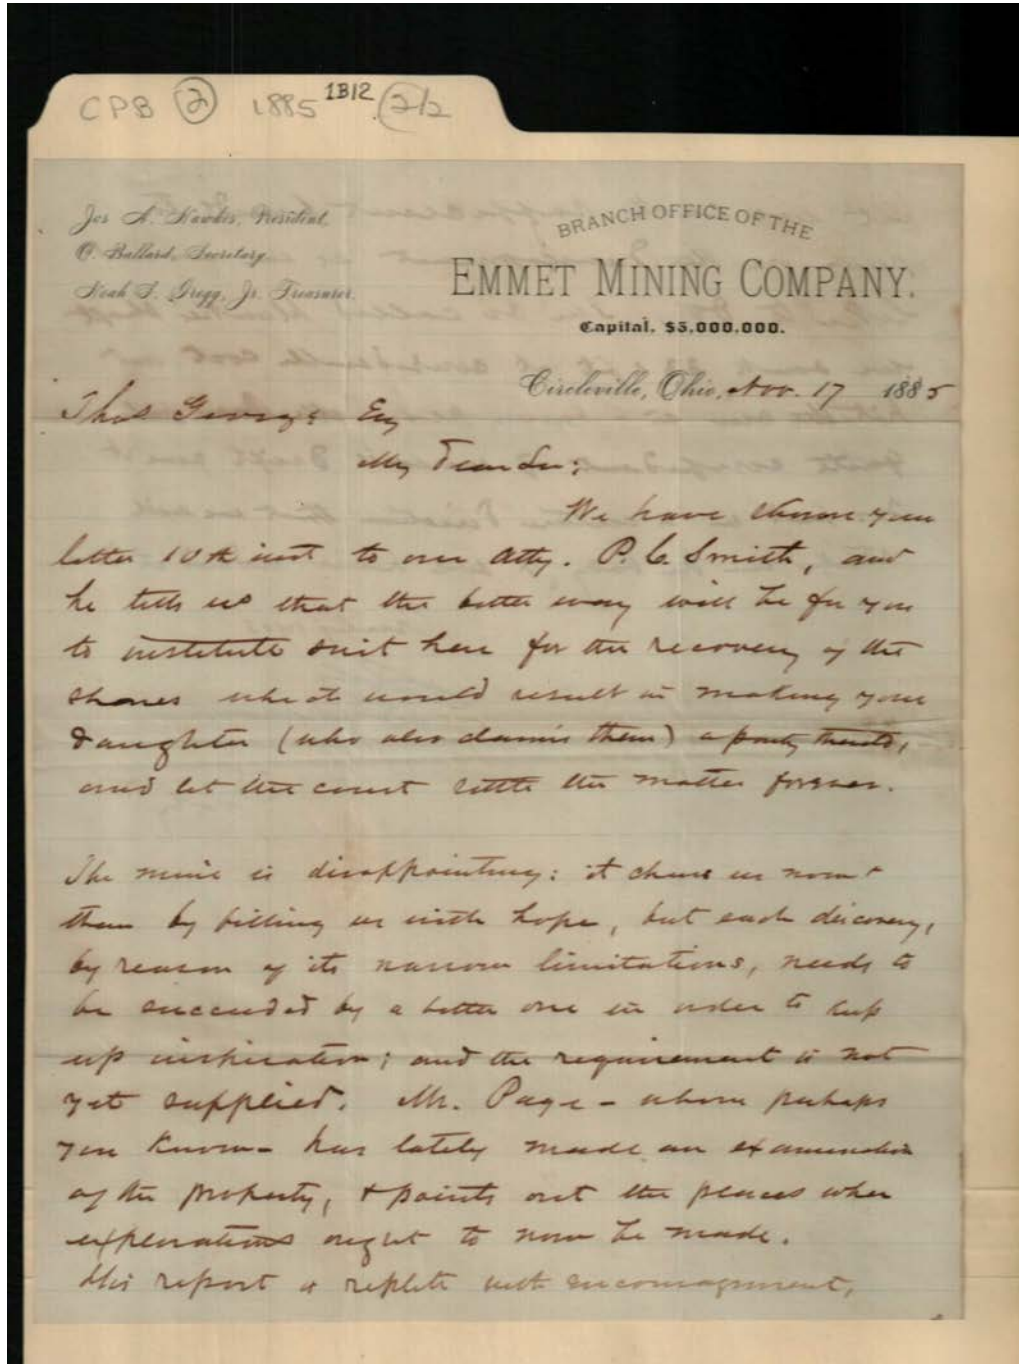 CPB 2 1885 1B12 (2/2
Jos A. Hawkes, President,
O. Ballard, Secretary.
Noah S. Gregg, Jr. Treasurer.
BRANCH OFFICE OF THE
EMMET MINING COMPANY.
Capital. $5,000,000.
Circleville, Ohio, Nov. 17 1885
Thos George Esq
My Dear Sir;
We have shown your
letter 10th inst to our Atty. P. C. Smith, and
he tells us that the better way will be for you
to institute suit here for the recovery of the
shares which would result in making your
daughter (who also claims them) a party thereto,
and let the court settle the matter forever.
The mine is disappointing: it cheers us now &
then by filling us with hope, but each discovery,
by reason of its narrow limitations, needs to
be succeeded by a better one in order to keep
up inspiration; and the requirement is not
yet supplied. Mr. Page - whom perhaps
you know - has lately made an examination
of the property, & points out the places where
explorations ought to now be made.
His report is replete with encouragement,